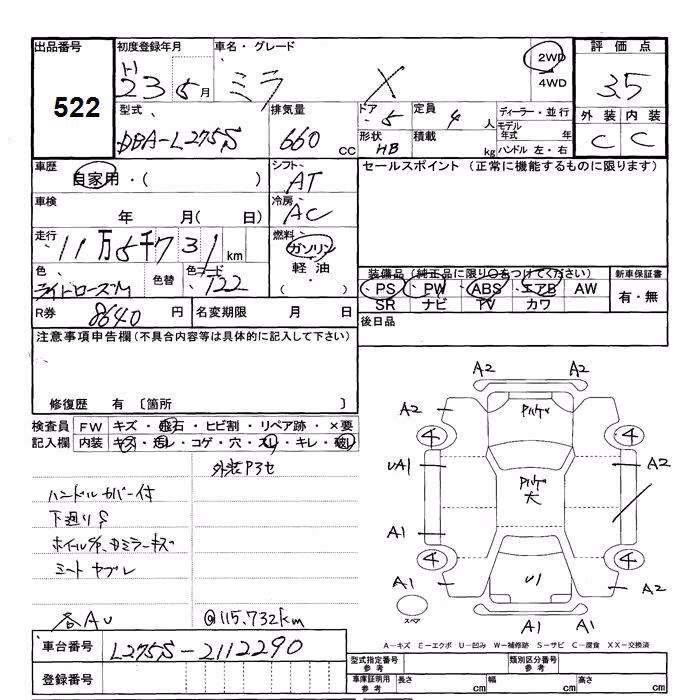 出品番号 初度登録年月 車名・グレード 評価点
522
H23 5月 ミラ X 2WD 4WD 3.5
型式 排気量 ドア 定員 ディーラー・並行 外装 内装
DBA-L275S 660 CC 5 4人 モデル年式 年 C C
形状 HB 積載 kg ハンドル 左・右
車歴 自家用・( ) シフト AT セールスポイント(正常に機能するものに限ります)
車検 年 月( 日) 冷房 AC
走行 11万5千731km 燃料 ガソリン
軽油
・( )
色 色替 色コード 122
装備品(純正品に限り○をつけてください) 新車保証書
・PS ・PW ・ABS ・エアB AW 有・無
SR ナビ TV カワ
R券 8640円 名変期限 月 日 後日品
注意事項申告欄(不具合内容等は具体的に記入して下さい)
修復歴 有 〔箇所 〕
検査員 FW キズ・飛石・ヒビ割・リペア跡・×要
記入欄 内装 キズ・汚レ・コゲ・穴・スレ・キレ・破レ
外装Pヨセ
ハンドルカバー付
下廻りS
シートヤブレ
各AU @115,732km
A2 A2
A2 A2
4 4
UA1 A2
A1
4 4
A1 U1 A2
スペア
A1 A1
A-キズ E-エクボ U-凹み W-補修跡 S-サビ C-腐食 XX-交換済
車台番号 L275S-2112290
登録番号
型式指定番号 参考 類別区分番号 参考
車庫証明用 参考 長さ cm 幅 cm 高さ cm